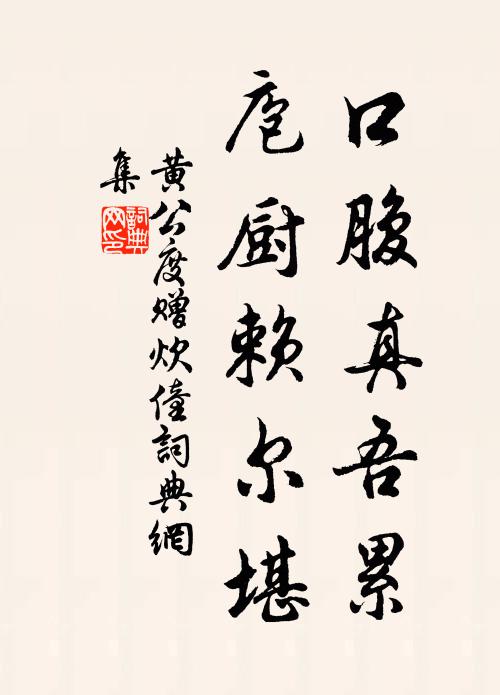 口腹真吾累
庖厨赖尔堪
黄公度赠炊僮詞典網
集
詞典网印